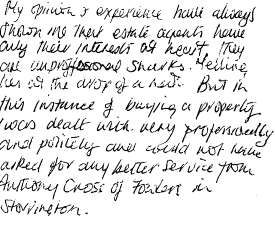 My opinion & experience have always
shown me that estate agents have
only their interests at heart, they
are unprofessional sharks. Telling
lies at the drop of a hat. But in
this instance of buying a property
I was dealt with very professionally
and politely and could not have
asked for any better service from
Anthony Cross of Fowlers in
Storrington.